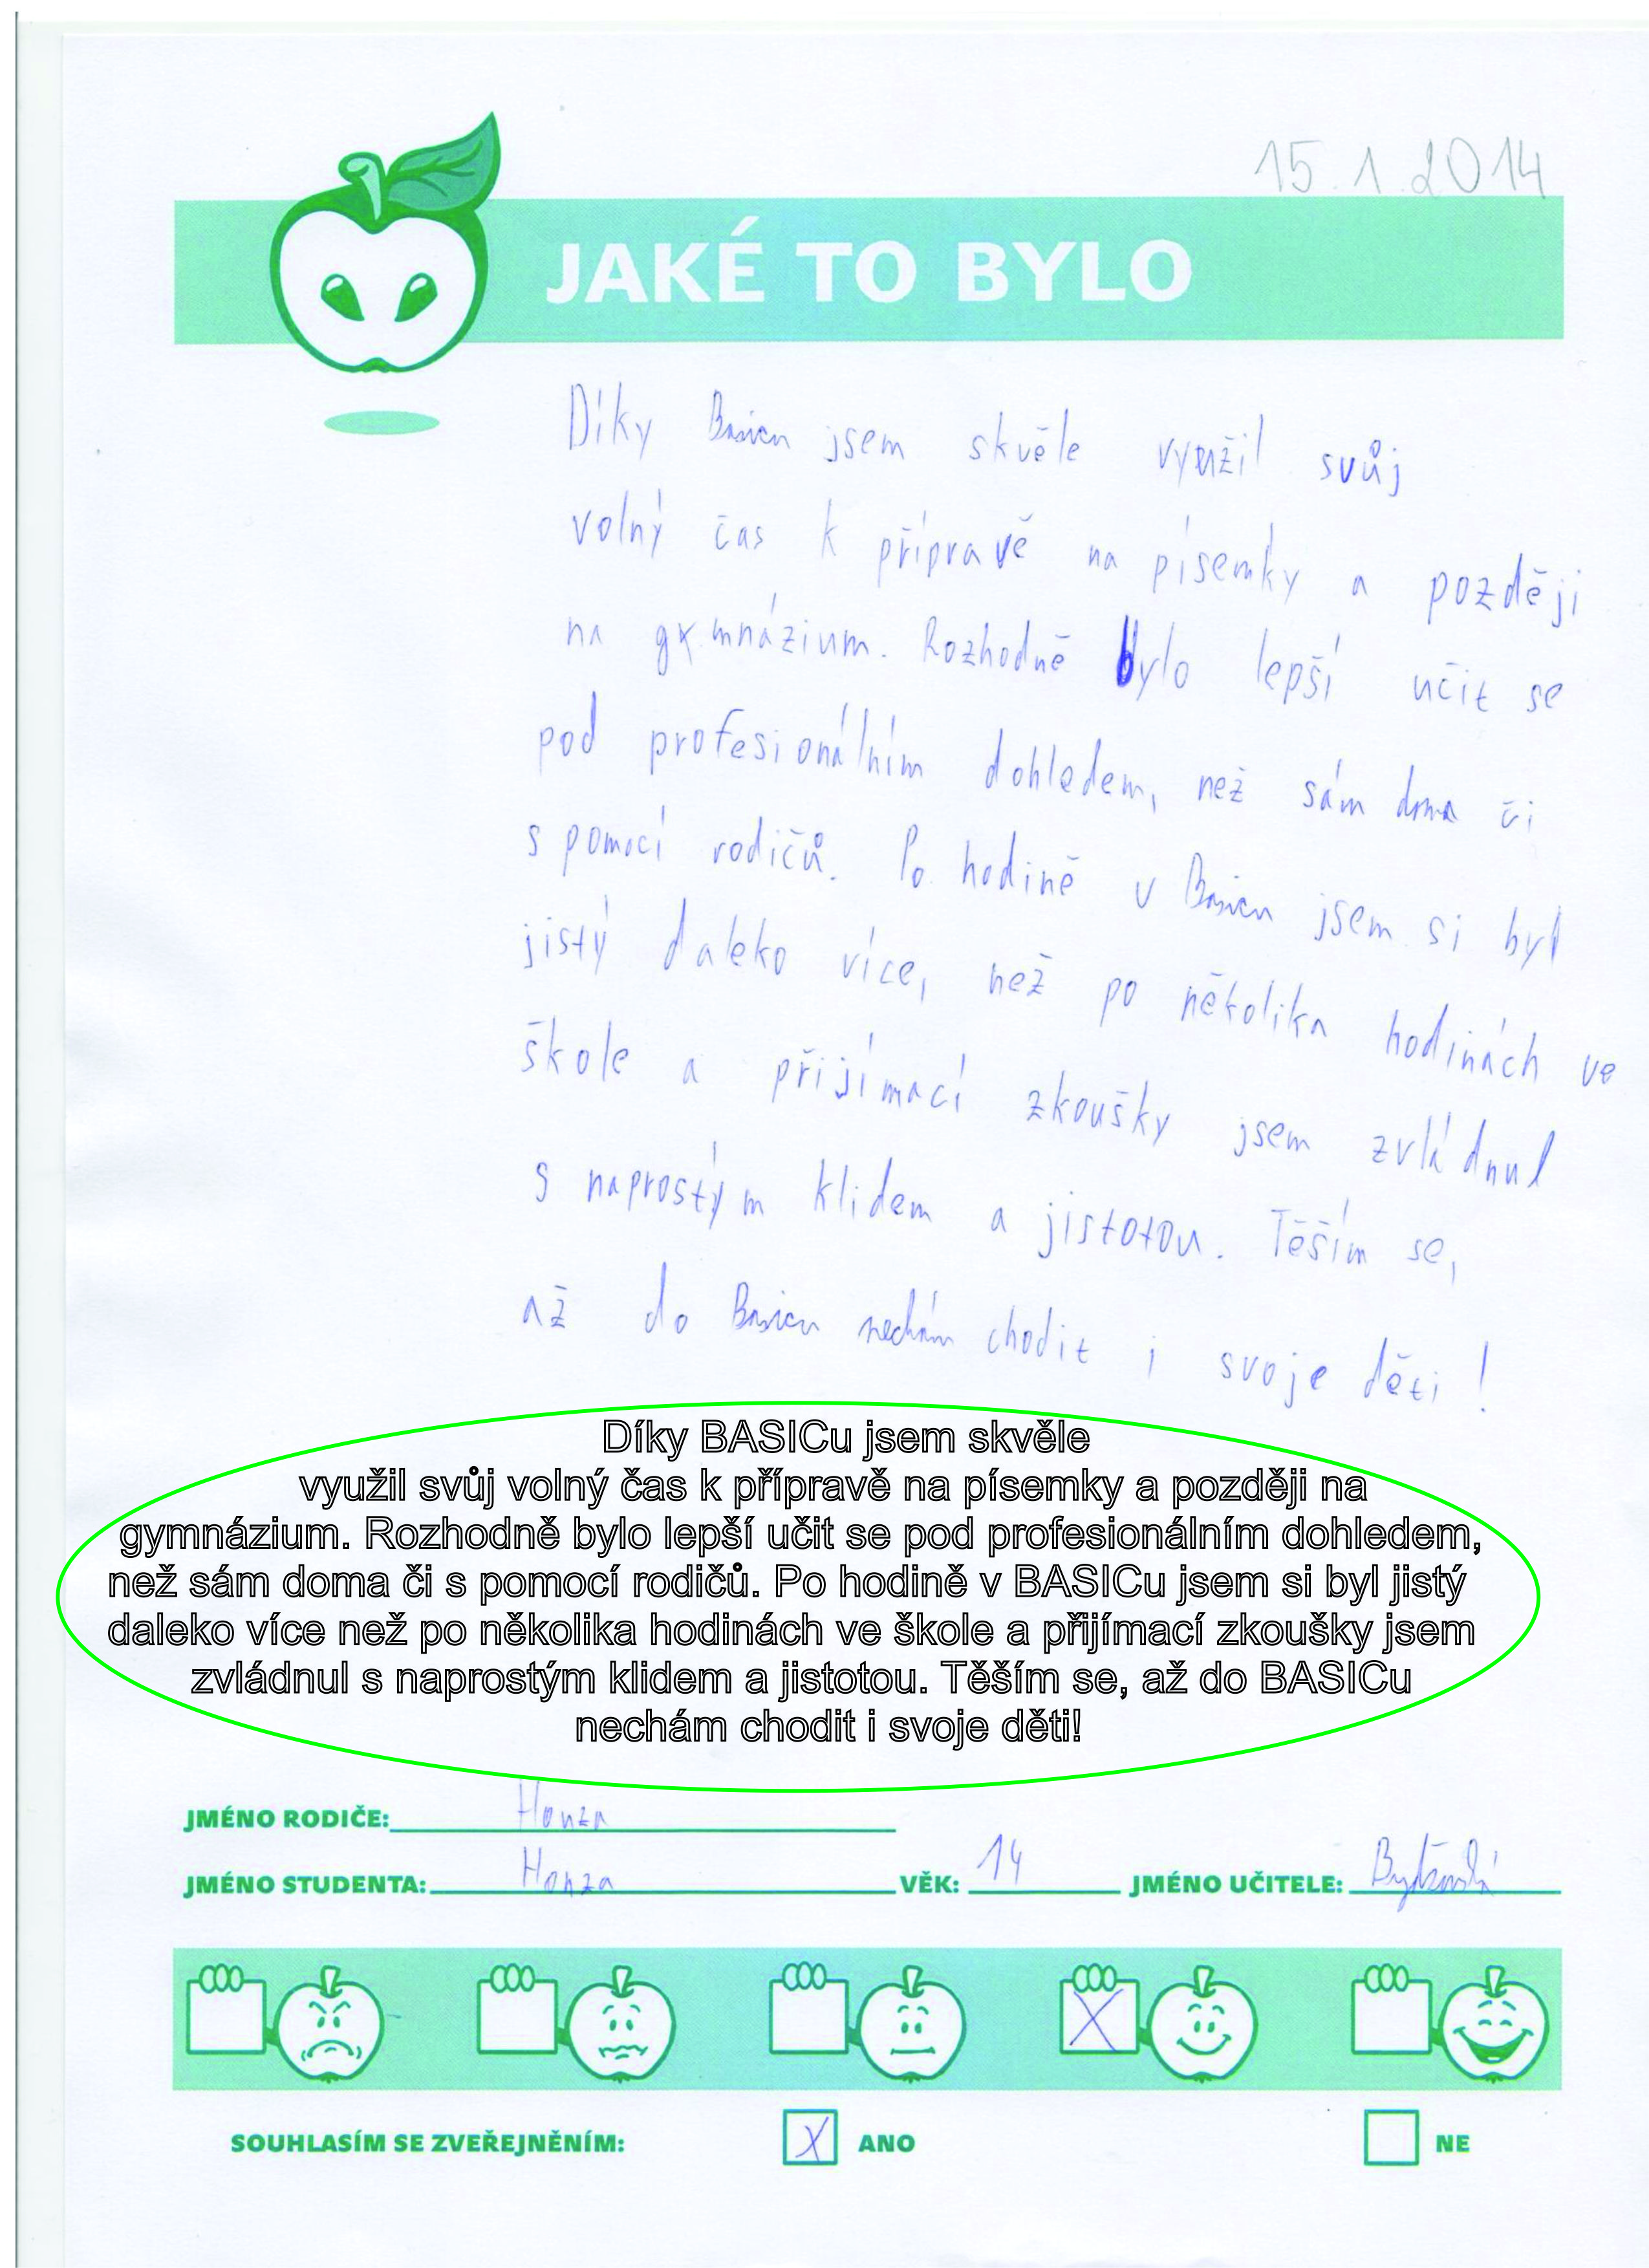 15.1.2014
JAKÉ TO BYLO
Díky Basicu jsem skvěle využil svůj
volný čas k přípravě na písemky a později
na gymnázium. Rozhodně bylo lepší učit se
pod profesionálním dohledem, než sám doma či
s pomocí rodičů. Po hodině v Basicu jsem si byl
jistý daleko více, než po několika hodinách ve
škole a přijímací zkoušky jsem zvládnul
s naprostým klidem a jistotou. Těším se,
až do Basicu nechám chodit i svoje děti!
Díky BASICu jsem skvěle
využil svůj volný čas k přípravě na písemky a později na
gymnázium. Rozhodně bylo lepší učit se pod profesionálním dohledem,
než sám doma či s pomocí rodičů. Po hodině v BASICu jsem si byl jistý
daleko více než po několika hodinách ve škole a přijímací zkoušky jsem
zvládnul s naprostým klidem a jistotou. Těším se, až do BASICu
nechám chodit i svoje děti!
JMÉNO RODIČE: Honza
JMÉNO STUDENTA: Honza VĚK: 14 JMÉNO UČITELE:
SOUHLASÍM SE ZVEŘEJNĚNÍM: X ANO NE